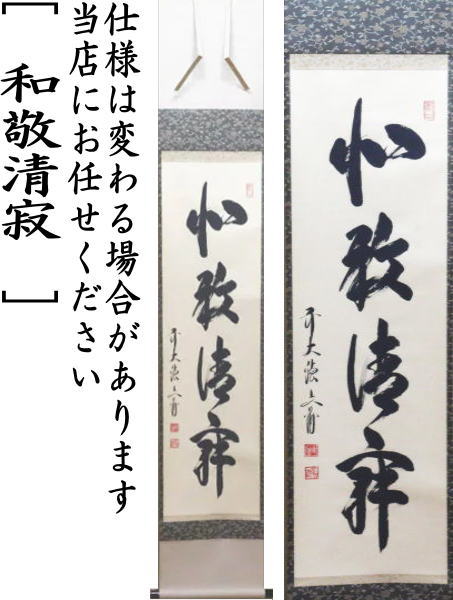 仕様は変わる場合があります
当店にお任せください
[ 和敬清寂 ]
和敬清寂
和敬清寂